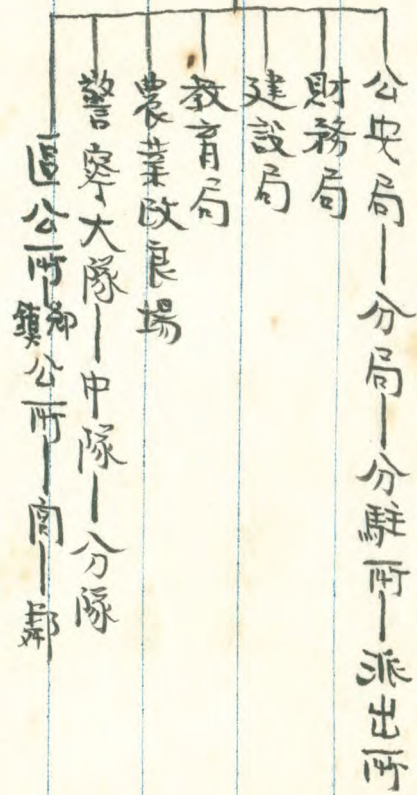 公安局—分局—分駐所—派出所
財務局
建設局
教育局
農業改良場
警察大隊—中隊—分隊
區公所—鄉鎮公所—閭—鄰